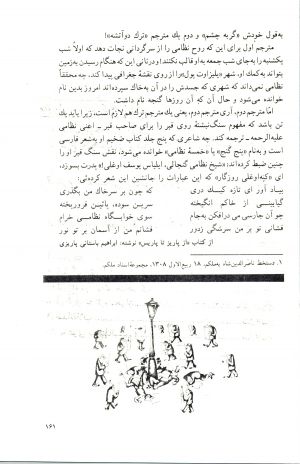 به‌قول خودش «گربه چشم» و دوم یك مترجم «ترك دوآتشه»!
مترجم اول برای این که روح نظامی را از سرگردانی نجات دهد که اولا شب
یکشنبه را به‌جای شب جمعه به‌او قالب نکنند! ودرثانی این که هنگام رسیدن به‌زمین
بتواند به‌کمك او، شهر «یلیزاوت پول» را از روی نقشهٔ جغرافی پیدا کند. چه محققاً
نظامی نمی‌داند که شهری که جسدش را در آن به‌خاك سپرده‌اند امروز بدین نام
خوانده می‌شود و حال آن که آن روزها گنجه نام داشت.
اما مترجم دوم، آری مترجم دوم، یعنی یك مترجم ترك هم لازم است، زیرا باید یك
تن باشد که مفهوم سنگ‌نبشتهٔ روی قبر را برای صاحب قبر ـ اعنی نظامی
علیه‌الرحمه ـ ترجمه کند. چه شاعری که پنج جلد کتاب ضخیم او به‌شعر فارسی
است و به‌نام «پنج گنج» یا «خمسهٔ نظامی» خوانده می‌شود، نقش سنگ قبر او را
چنین ضبط کرده‌اند: «شیخ نظامی گنجائی، ایلیاس یوسف اوغلی!» بدرت بسوزد،
ای «کپه‌اوغلی روزگار» که این عبارات را جانشین این شعر کرده‌ئی:
بیاد آور ای تازه کبك دری
که چون بر سرخاك من بگذری
گیابینی از خاکم انگیخته
سرین سوده، پائین فروریخته
چو آن جارسی می درافکن به‌جام
سوی خوابگاه نظامی خرام
فشانی تو بر من سرشکی زدور
فشانم من از آسمان بر تو نور
از کتاب «از پاریز تا پاریس» نوشته: ابراهیم باستانی پاریزی
۱. دستخط ناصرالدین‌شاه به‌ملکم، ۱۸ ربیع‌الاول ۱۳۰۸، مجموعهٔ اسناد ملکم.
۱۶۱